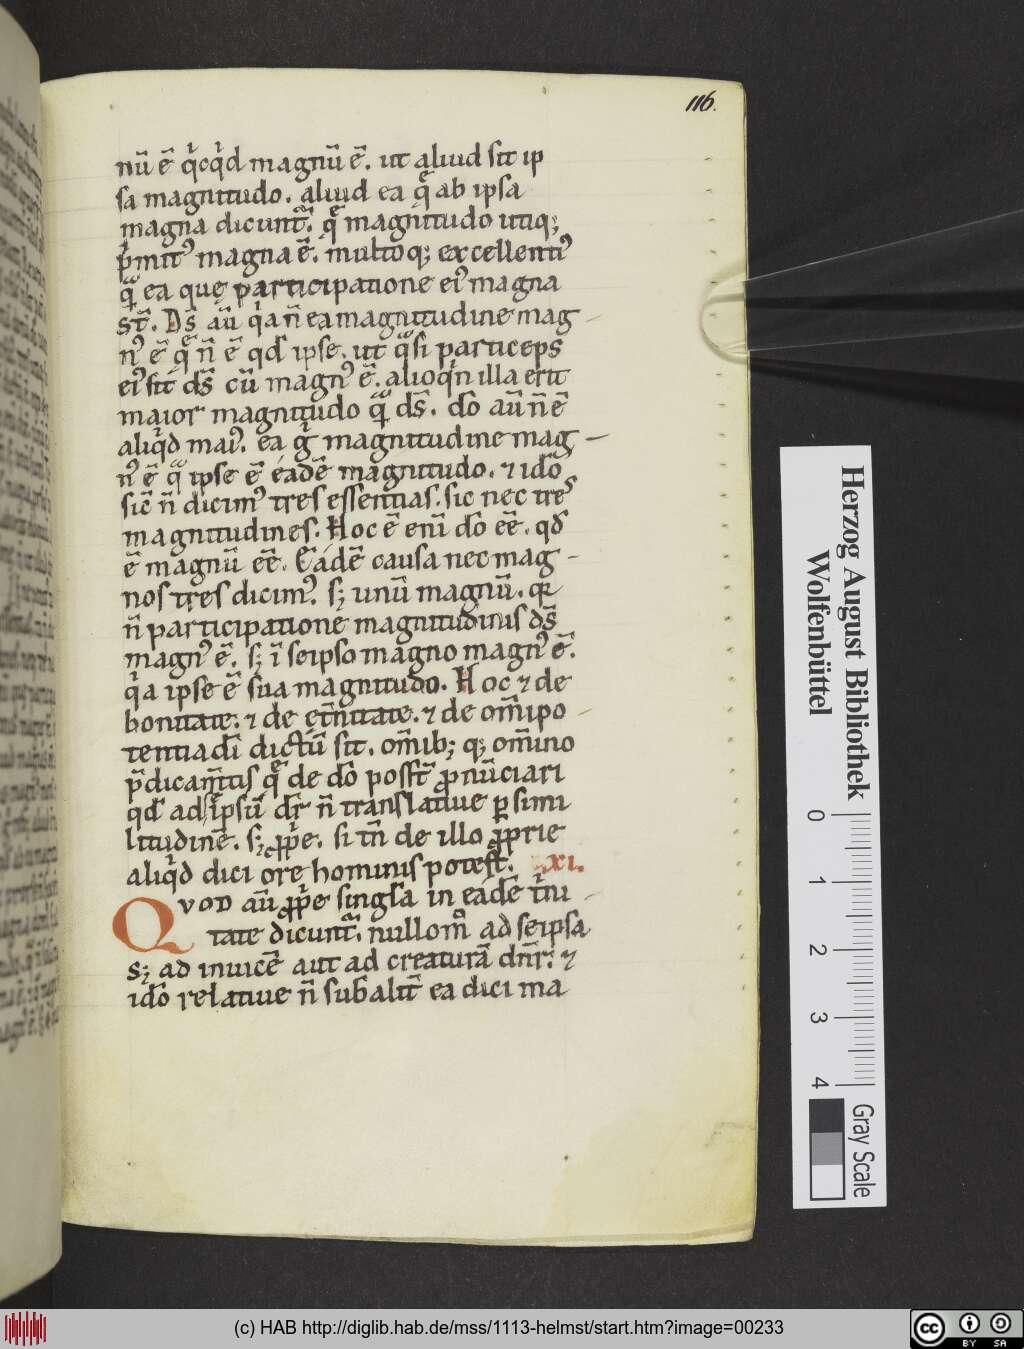 116.
nū ē qͥcqͥd magnū ē. ut aliud sit ip
sa magnitudo. aliud ea q̄ ab ipsa
magna dicunt᷑. q̄ magnitudo utiq;
p̄mit᷒ magna ē. multoq; excellenti᷒
qͣ̄ ea quę participatione ei᷒ magna
st̄. Ds̄ aū qͥa n̄ ea magnitudine mag
n᷒ ē q̄ n̄ ē qd̄ ipse. ut qͣsi particeps
ei᷒ sit ds̄ cū magn᷒ ē. alioqͥn illa erit
maior magnitudo qͣ̄ ds̄. dō aū n̄ ē
aliqͥd mai᷒. ea gͥ magnitudine mag
n᷒ ē qͣ ipse ē eadē magnitudo. ⁊ idō
sic̄ n̄ dicim᷒ tres essentias. sic nec tres
magnitudines. Hoc ē enī dō eē. qd̄
ē magnū eē. Eadē causa nec mag
nos tres dicim᷒. sꝫ unū magnū. qꝛ
n̄ participatione magnitudinis ds̄
magn᷒ ē. sꝫ ī seipso magno magn᷒ ē.
qͥa ipse ē sua magnitudo. Hoc ⁊ de
bonitate. ⁊ de et̄nitate. ⁊ de om̄ipo
tentia dī dictū sit. om̄ib; q; om̄ino
p̄dicam̄tis q̄ de dō possт̄ ꝓnūciari
qd̄ ad īpsū dr̄ n̄ translatiue ꝑ simi
litudinē. sꝫ ꝓpͥe. si tn̄ de illo ꝓprie
aliqͥd dici ore hominis potest. xi.
Qvod aū ꝓpͥe singła in eadē tͥni
tate dicunt᷑. nullom̊ ad seipsa
sꝫ ad inuicē aut ad creaturā dn̄r. ⁊
idō relatiue n̄ subałit̄ ea dici ma
Herzog August Bibliothek
Wolfenbüttel
0 1 2 3 4
Gray Scale
(c) HAB http://diglib.hab.de/mss/1113-helmst/start.htm?image=00233
cc BY SA